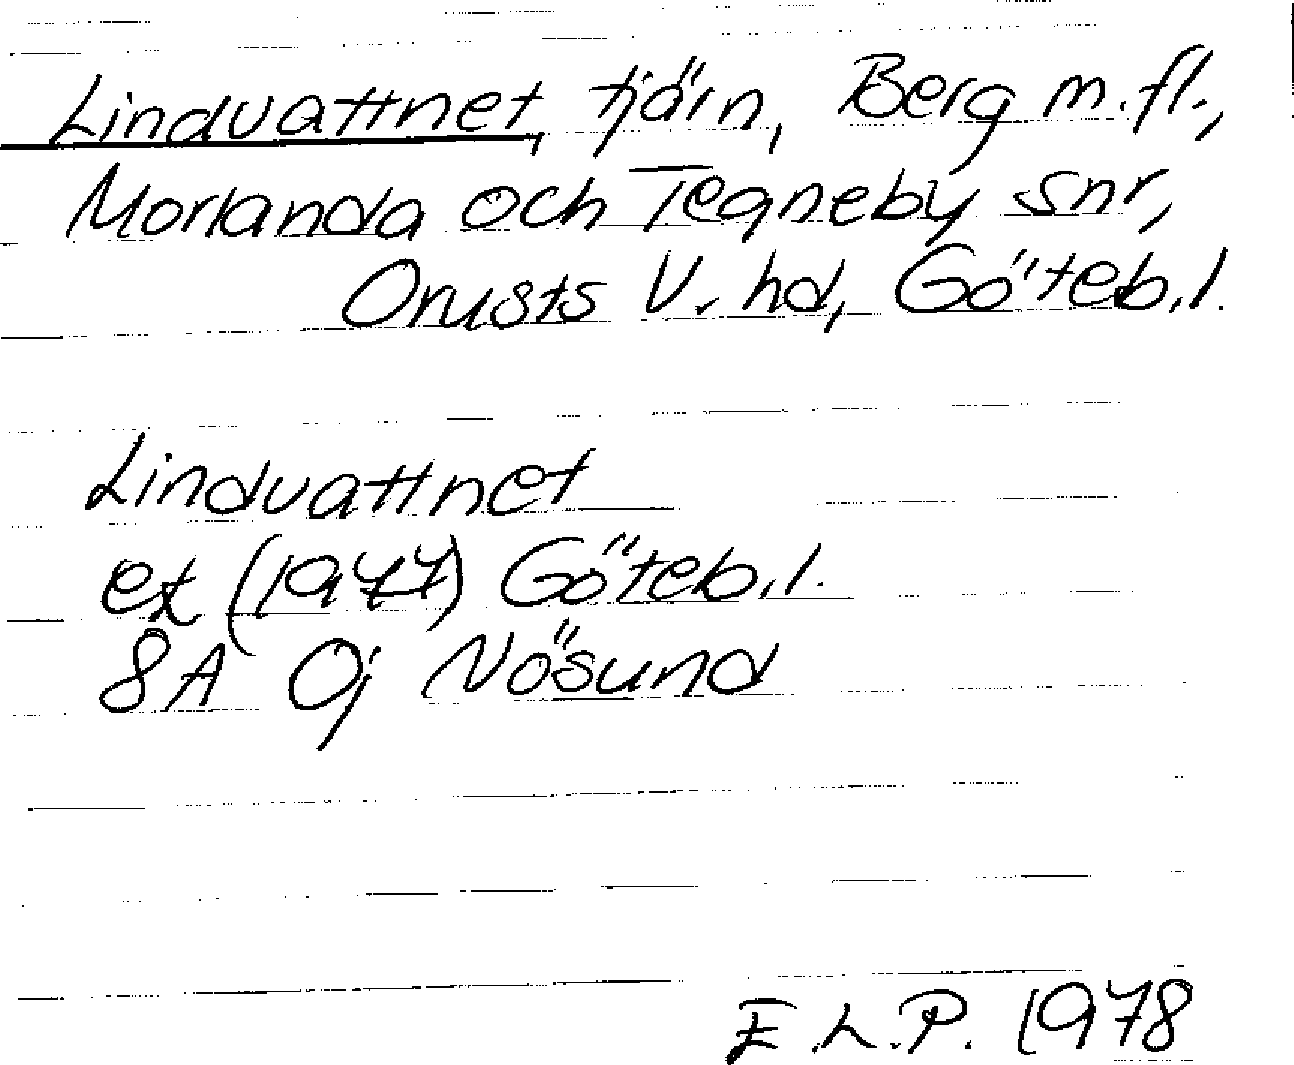 Lindvattnet, tjärn, Berg m.fl.,
Morlanda och Tegneby snr,
Orusts V. hd, Göteb.l.
Lindvattnet
ek (1977) Göteb.l.
8A 0j Nösund
E.L.P. 1978